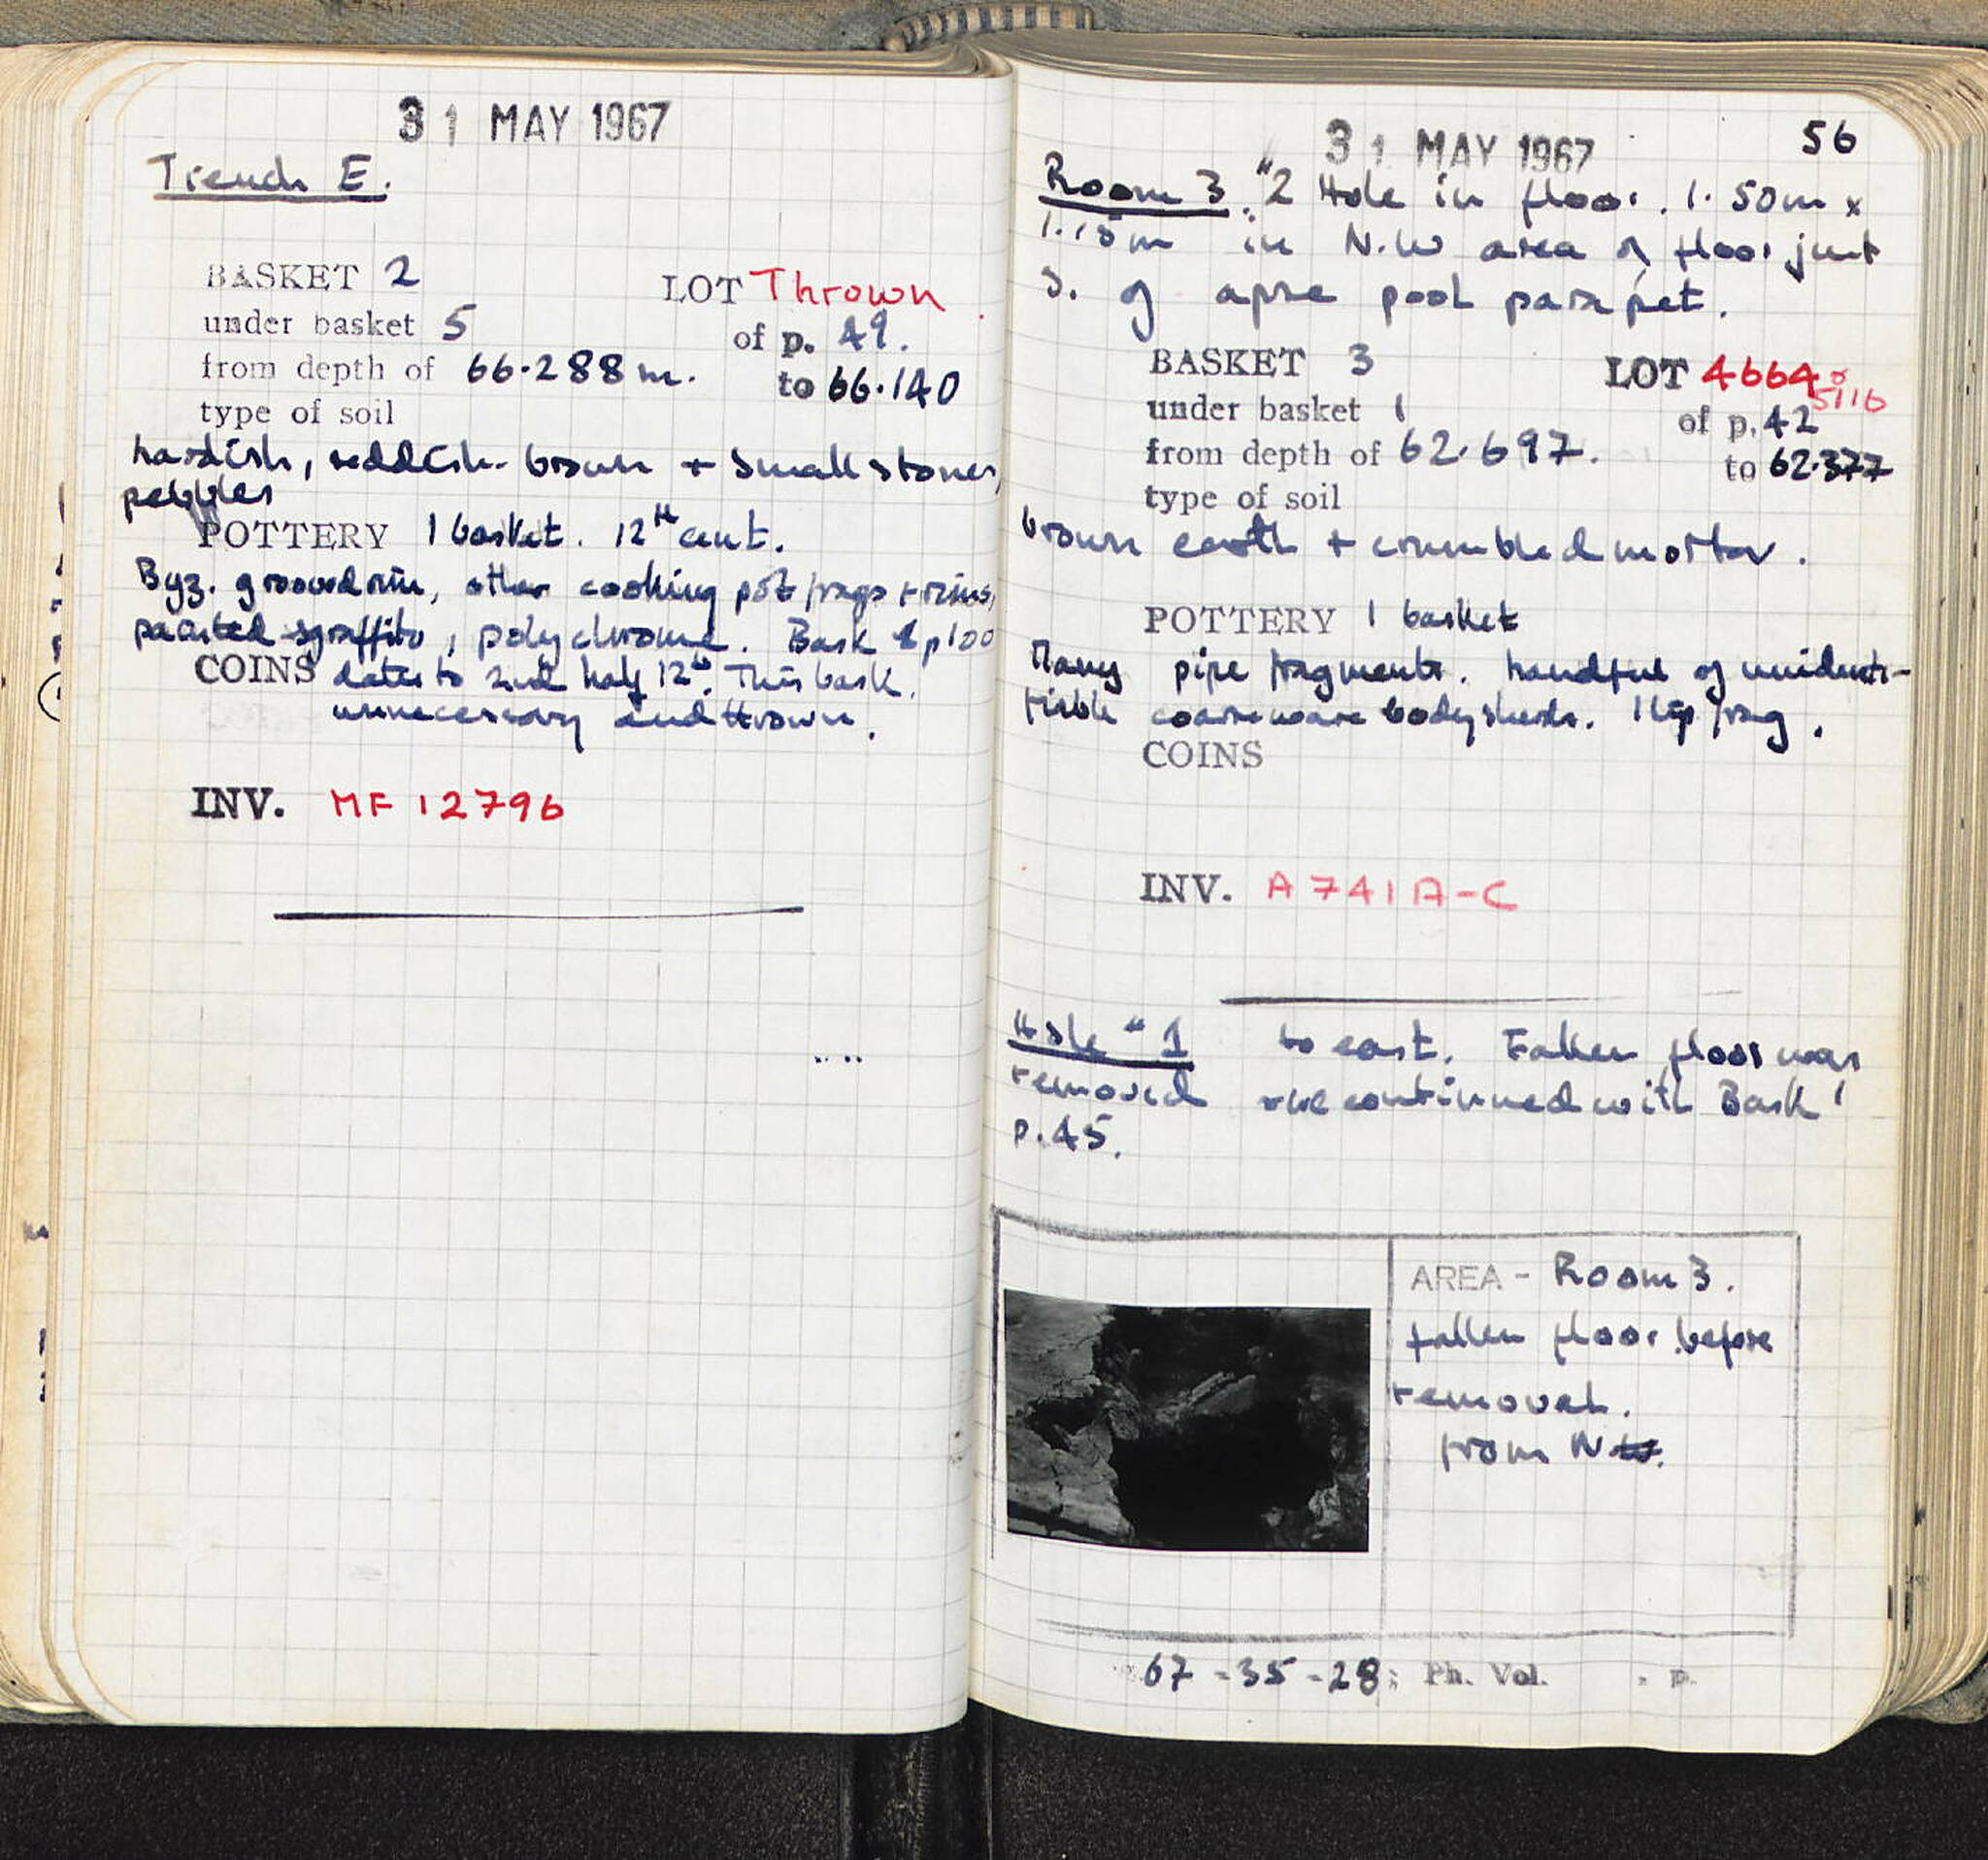 31 MAY 1967
Trench E.
BASKET 2 LOT Thrown
under basket 5 of p. 49.
from depth of 66.288m. to 66.140
type of soil
hardish, reddish-brown + small stones,
pebbles
POTTERY 1 basket. 12th cent.
Byz. grooved rim, other cooking pot frags + rims,
painted sgraffito, polychrome. Bask p100
COINS dates to 2nd half 12th. This bask.
unnecessary and thrown.
INV. MF 12796
31 MAY 1967 56
Room 3. "2 Hole in floor. 1.50m x
1.15m in N.W area of floor just
S. of apse pool parapet.
BASKET 3 LOT 4664 5116
under basket 1 of p. 42
from depth of 62.697. to 62.377
type of soil
brown earth + crumbled mortar.
POTTERY 1 basket
Many pipe fragments. handful of unidenti-
fiable coarseware bodysherds. 1 lip frag.
COINS
INV. A 741 A-C
Hole "1 to east. Fallen floor was
removed continued with Bask 1
p. 45.
AREA - Room 3.
fallen floor before
removal.
from N
67-35-28; Ph. Vol. , p.